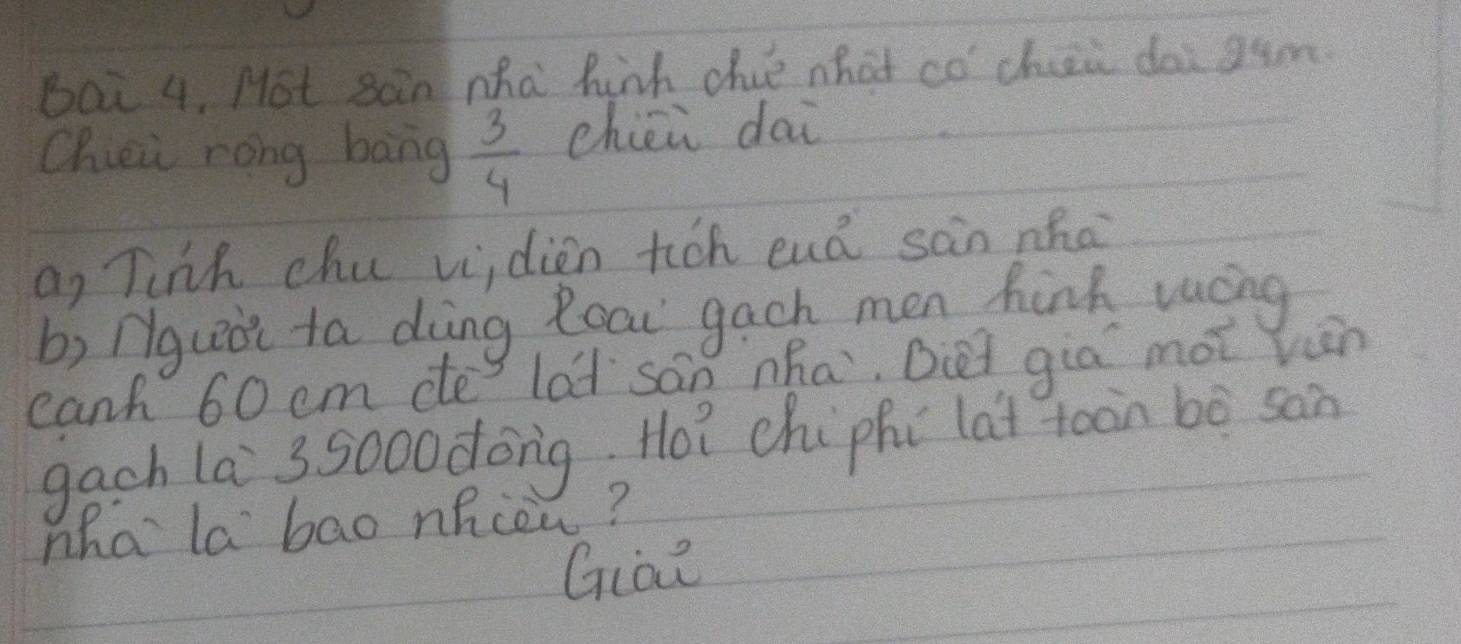 Bài 4. Một sàn nhà hình chữ nhật có chiều dài
Chiều rộng bằng 3/4 chiều dài
a, Tính chu vi, diện tích cuả sàn nhà
b, Người ta dùng loại gạch men hình vuông
cạnh 60 cm để lát sàn nhà. Biết giá mỗi viên
gạch là 35000 đồng. Hỏi chi phí lát toàn bộ sàn
nhà là bao nhiêu?
Giải